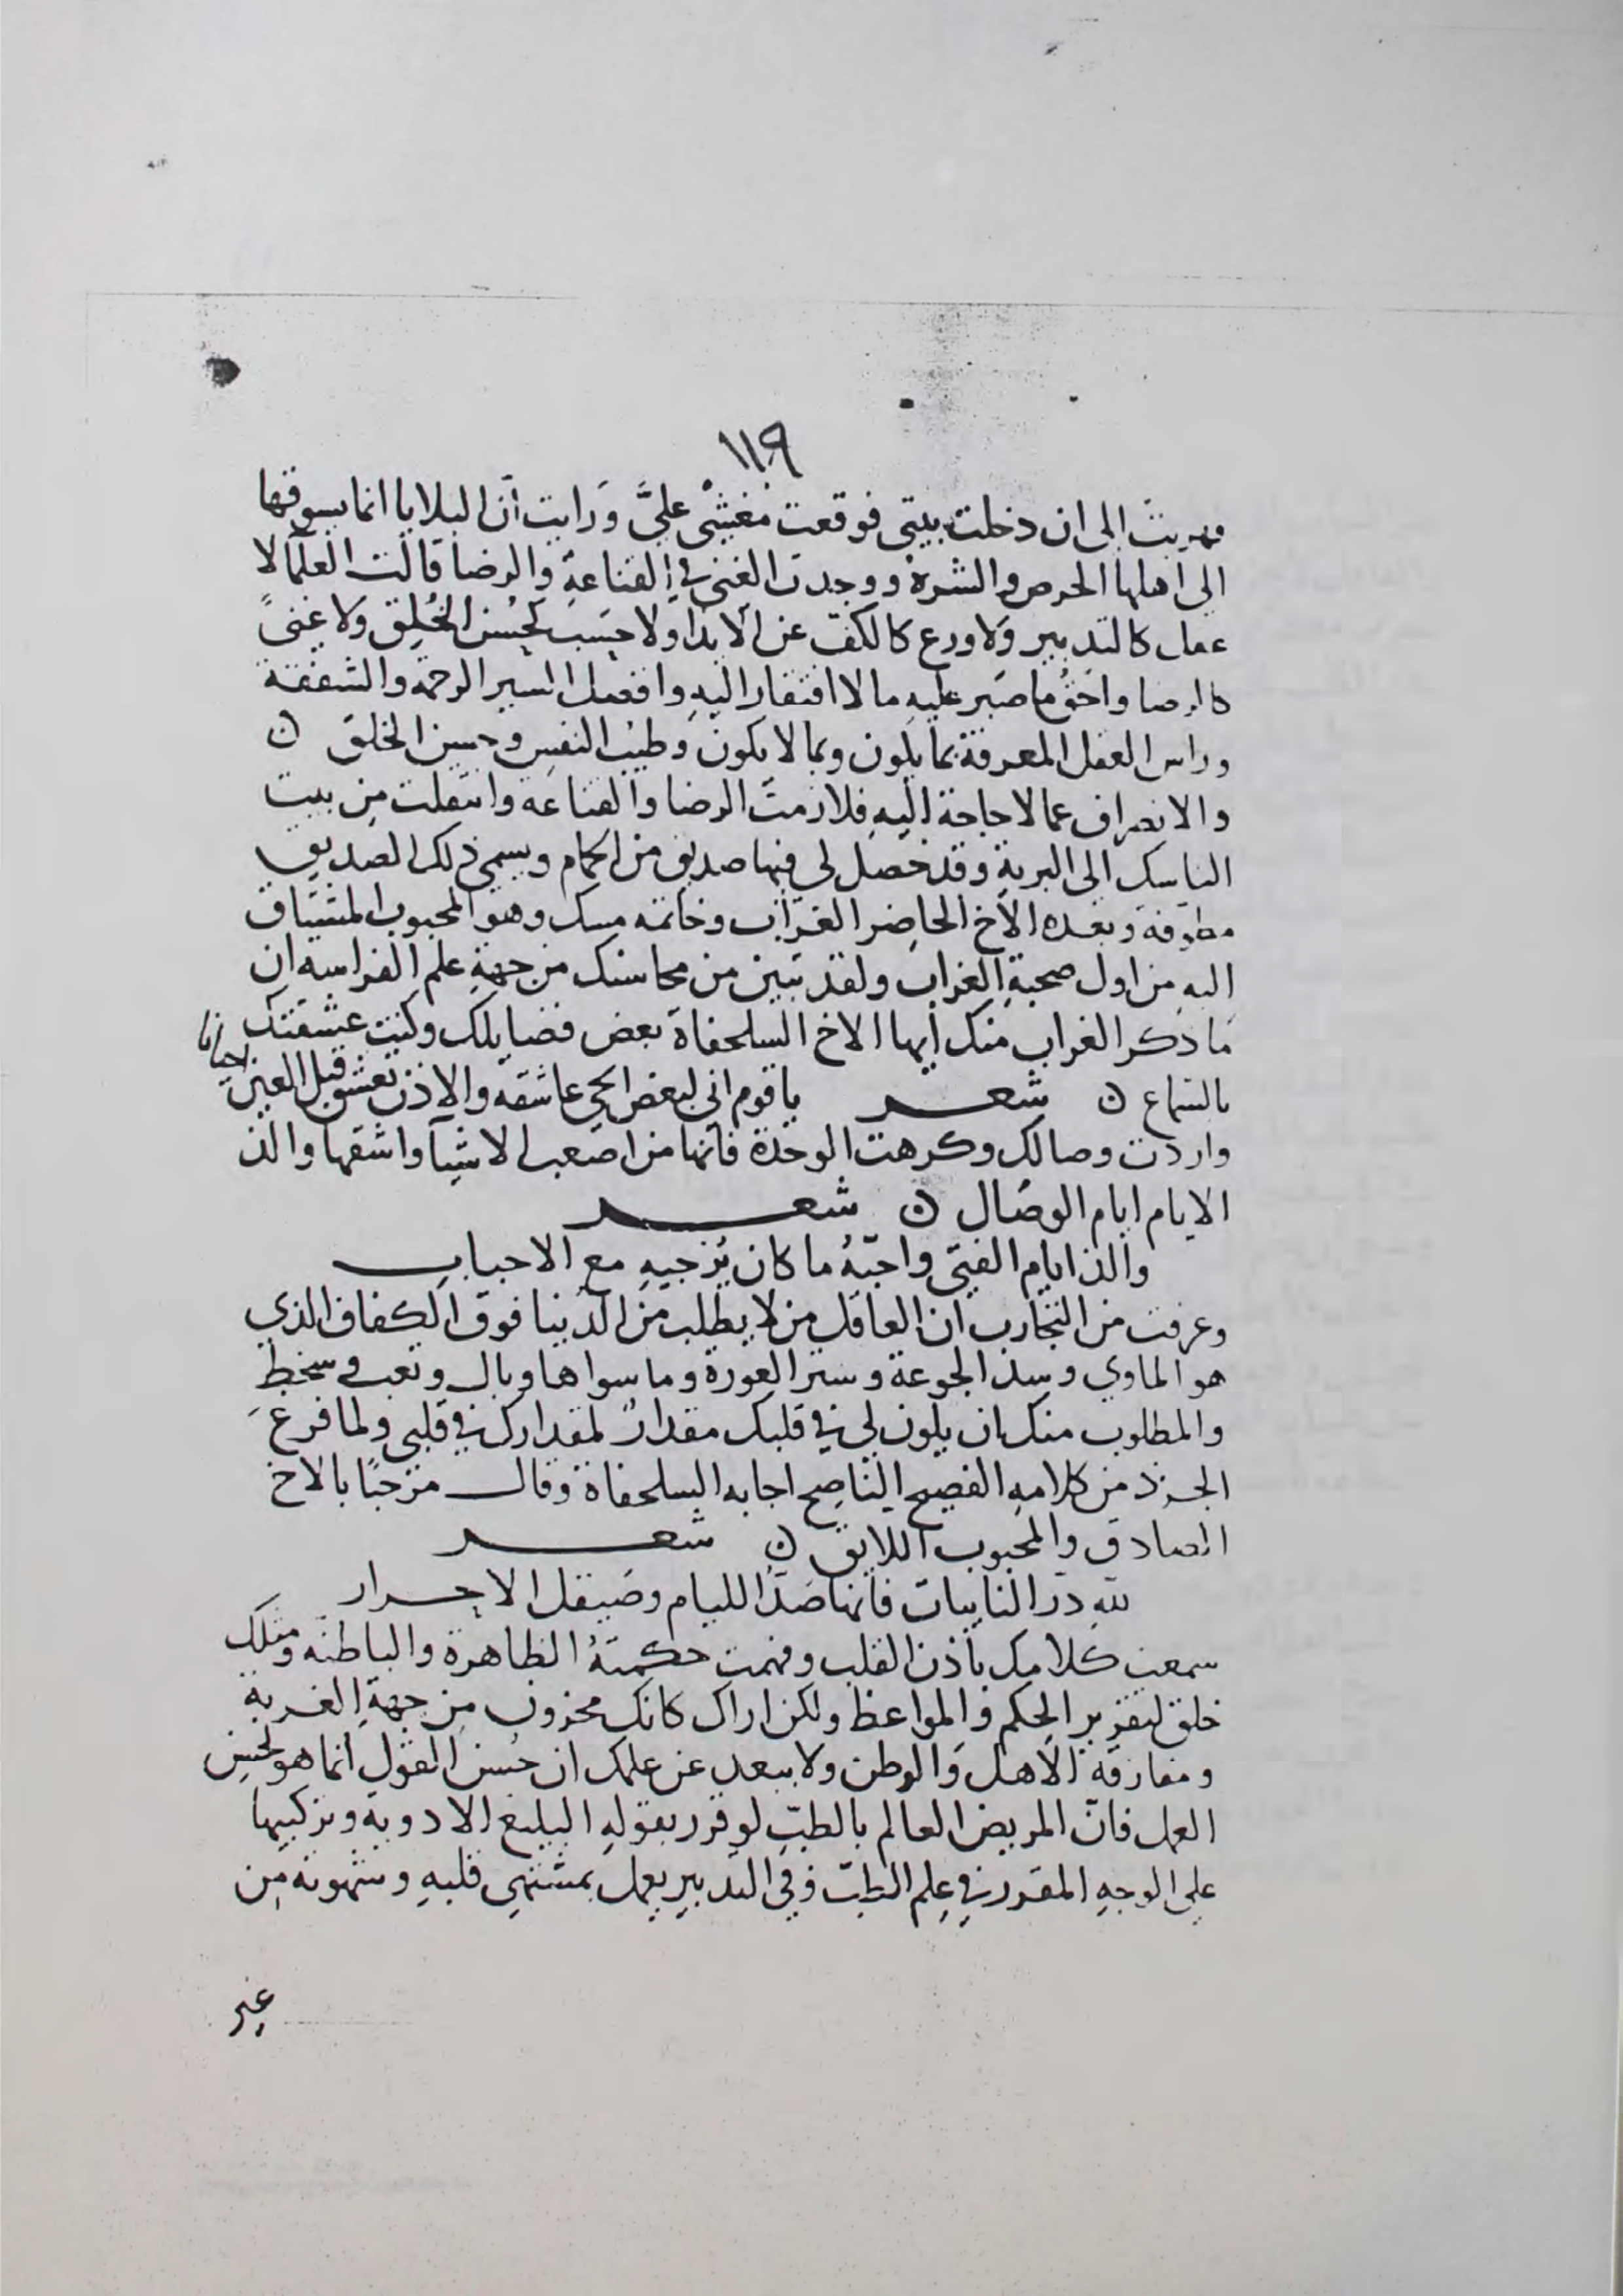 ١١٩
فهربت الى ان دخلت بيتى فوقعت مَغشىْ علىَّ وَرايت اَنّ البلايا انما يسوقها
الى اهلها الحرص والشرهْ ووجدت الغنى في القناعةِ والرضا قالت العلمآ لا
عقل كالتدبير وَلا ورع كالكفّ عن الايذا ولا حَسَب كحُسن الخُلقِ ولا غنىً
كالرضا واحَقُ ما صَبر عليهِ ما لا افتقار اليهِ وافعمل السير الرحمة والشفقة
وراس العقل المعرفة بما يكون وبما لا يكونَ وَطيب النفسِ وحسن الخلق ن
والانصراف عما لا حاجة اليهِ فلازمتَ الرضا والقناعة وانتقلت مِن بيت
الناسك الى البرية وقد حَصَل لى فيها صديق من الحمام ويسمى ذلك الصديق
مطوقة وبعده الأخ الحاضر الغراب وخاتمه مسك وهو المحبوب المشتاق
اليهِ من اول صحبة الغراب ولقد تبين من محاسنك من جهةِ علم الفراسه ان
مَا ذكر الغراب منك ايها الاخ السلحفاة بعض فضايلك وكنت عشقتك
بالسَماع ن شعر يا قوم اني لبعض الحي عاشقه والاذن تعشق قبل العين احيانا
واردت وصالك وكرهت الوحدة فانها من اصعب الاشيآ واشقها والذ
الايام ايام الوصَال ن شعر
والذ ايام الفتى واحبّهُ ما كان يُزجيهِ مع الاحباب
وعرفت من التجارب ان العاقل من لا يطلب من الدنيا فوق الكفاف الذي
هو الماوي وسد الجوعة وستر العورة وما سواها وبال وتعب وسخطِ
والمطلوب منك ان يكون لي في قلبك مقدارٌ لمقدارك في قلبى ولما فرغَ
الجرذ من كلامهِ الفصيح الناصِح اجابه السلحفاة وقال مرحبًا بالاخ
الصادق والمحبوب اللايق ن شعر
لله درّ النايبات فانها صَدَأُ الليام وصَيقل الاحرار
سمعت كلامك باذن القلب وفهمت حكمتهُ الظاهرة والباطنه ومثلك
خلق لتقرير الحِكم والمواعظ ولكن اراك كانك محزون مِن جهةِ الغربة
ومفارقة الاهل وَالوطن ولا يبعد عن علمك ان حُسن القول انما هو لحسن
العمل فانّ المريض العالم بالطبّ لو قرر بقولهِ البليغ الادوية وتركيبها
على الوجهِ المقرر في علِم الطبّ وفى التدبيرِ يعمل بمشتهى قلبهِ وشهوته مِن
غير